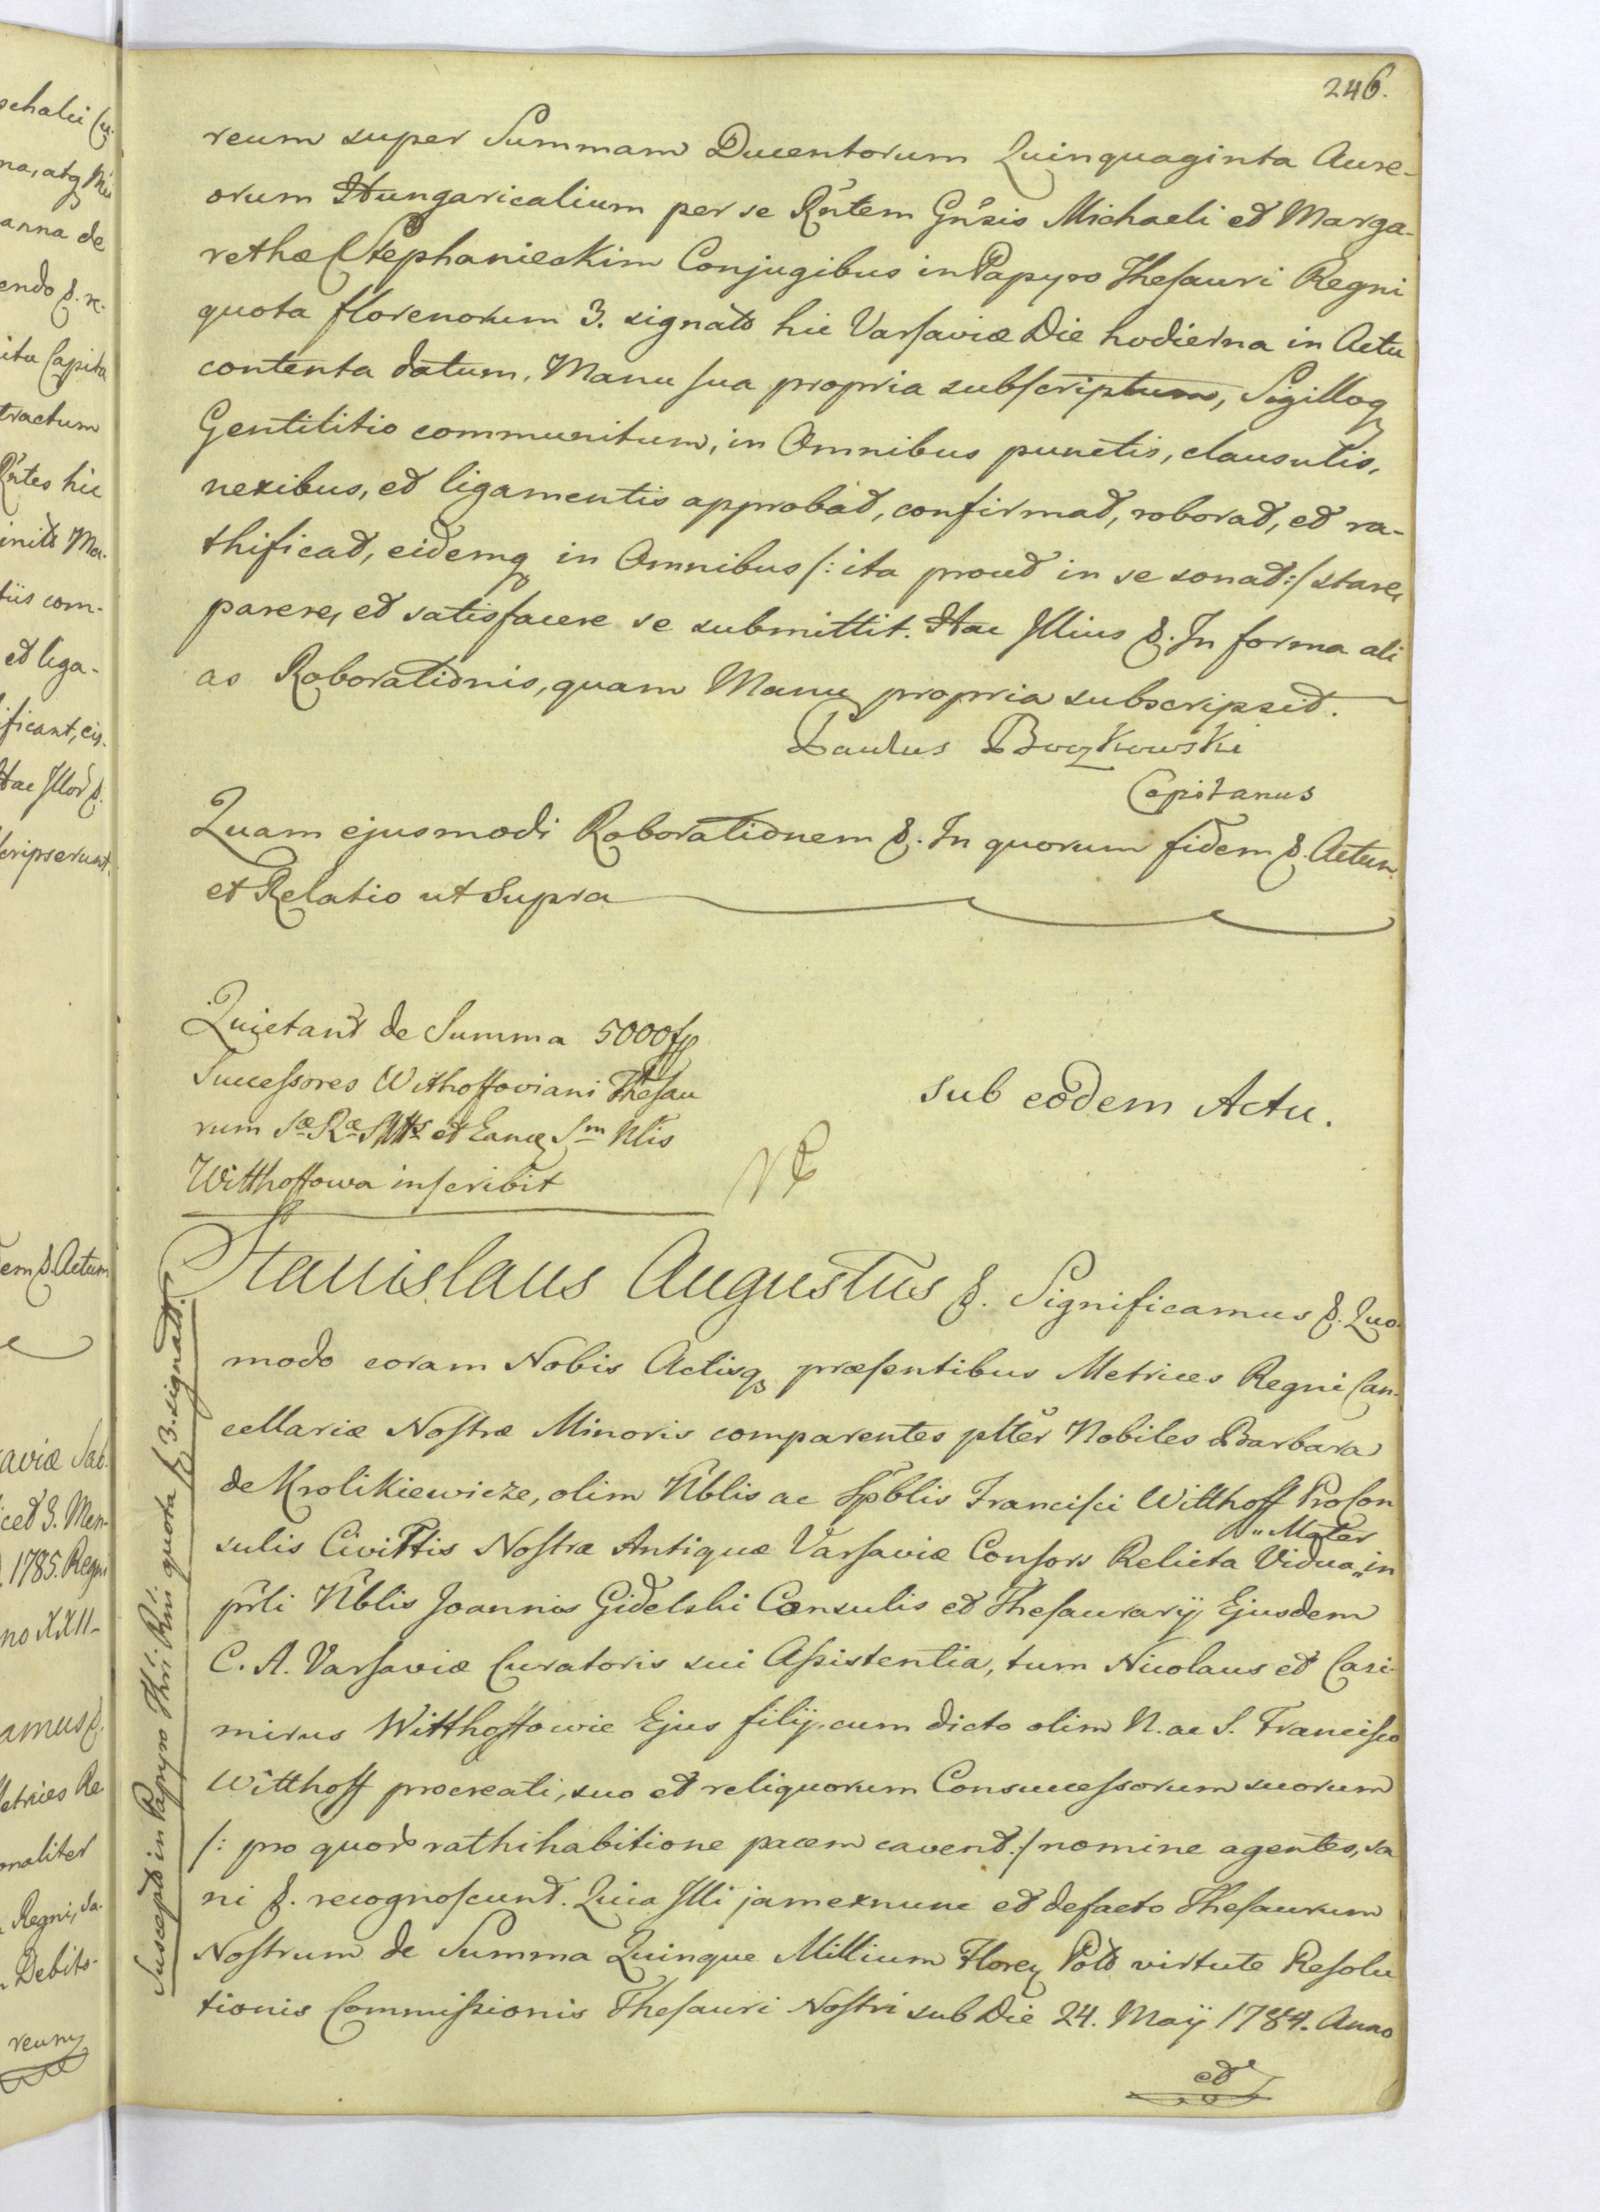 246.
reum super Summam Ducentorum Quinquaginta Aure-
orum Hungaricalium per se Rñtem Gñsis Michaeli et Marga-
rethæ Stephanieckim Conjugibus in Papyro Thesauri Regni
quota florenorum 3. signato hic Varsaviæ Die hodierna in Actu
contenta datum, Manu sua propria subscriptum, Sigilloq
Gentilitio communitum, in Omnibus punctis, clausulis,
nexibus, et ligamentis approbat, confirmat, roborat, et ra-
thificat, eidemq in Omnibus /: ita prout in se sonat :/ stare,
parere, et satisfacere se submittit. Hac Illius &. In forma ali
as Roborationis, quam Manu propria subscripsit.
Paulus Boczkowski
Capitanus
Quam ejusmodi Roborationem &. In quorum fidem &. Actum
et Relatio ut Supra
Quietant de Summa 5000 fp
Successores Withoffoviani Thesau
rum Sæ Ræ Mttis et Eancq Sm Nlis
Witthoffowa inscribit
sub eodem Actu.
Stanislaus Augustus &. Significamus &. Quo-
modo coram Nobis Actisq præsentibus Metrices Regni Can-
cellariæ Nostræ Minoris comparentes plter Nobiles Barbara
de Krolikiewicze, olim Nblis ac Spblis Francisci Witthoff Procon
sulis Civittis Nostræ Antiquæ Varsaviæ Consors Relicta Vidua " in
" Mater
prli Nblis Joannis Gidelski Consulis et Thesaurarij Ejusdem
C. A. Varsaviæ Curatoris sui Assistentia, tum Nicolaus et Casi-
mirus Witthoffowie Ejus filij, cum dicto olim N. ac S. Francisco
Witthoff procreati, suo et reliquorum Consuccessorum suorum
/: pro quor rathihabitione pacem cavent :/ nomine agentes, sa
ni &. recognoscunt. Quia Illi jam exnunc et defacto Thesaurum
Nostrum de Summa Quinque Millium Floreq Pol virtute Resolu
tionis Commissionis Thesauri Nostri sub Die 24. Maij 1784. Anno
et
Suscepto in Papyro Thri Rni quota f 3. signato.